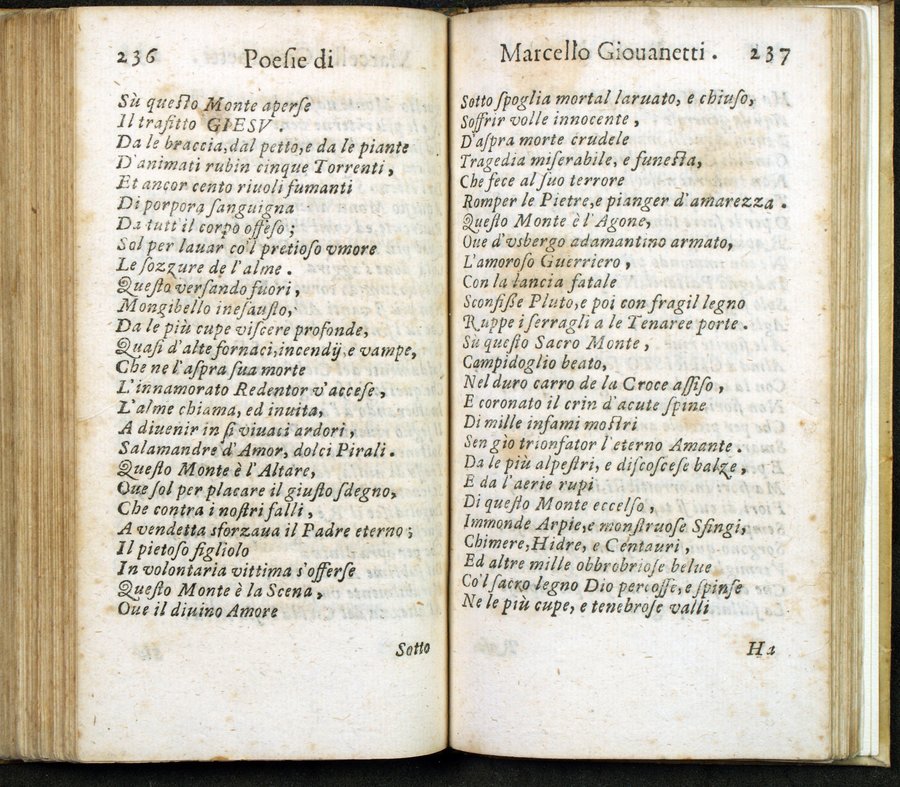 236 Poesie di
Sù questo Monte aperse
Il trafitto GIESV
Da le braccia, dal petto, e da le piante
D'animati rubin cinque Torrenti,
Et ancor cento riuoli fumanti
Di porpora sanguigna
Da tutt'il corpo offeso;
Sol per lauar co'l pretioso vmore
Le sozzure de l'alme.
Questo versando fuori,
Mongibello inesausto,
Da le più cupe viscere profonde,
Quasi d'alte fornaci, incendij, e vampe,
Che ne l'aspra sua morte
L'innamorato Redentor v'accese,
L'alme chiama, ed inuita,
A diuenir in sì viuaci ardori,
Salamandre d'Amor, dolci Pirali.
Questo Monte è l'Altare,
Oue sol per placare il giusto sdegno,
Che contra i nostri falli,
A vendetta sforzaua il Padre eterno;
Il pietoso figliolo
In volontaria vittima s'offerse
Questo Monte è la Scena,
Oue il diuino Amore
Sotto
Marcello Giouanetti. 237
Sotto spoglia mortal laruato, e chiuso,
Soffrir volle innocente,
D'aspra morte crudele
Tragedia miserabile, e funesta,
Che fece al suo terrore
Romper le Pietre, e pianger d'amarezza.
Questo Monte è l'Agone,
Oue d'vsbergo adamantino armato,
L'amoroso Guerriero,
Con la lancia fatale
Sconfisse Pluto, e poi con fragil legno
Ruppe i serragli a le Tenaree porte.
Sù questo Sacro Monte,
Campidoglio beato,
Nel duro carro de la Croce assiso,
E coronato il crin d'acute spine
Di mille infami mostri
Sen gio trionfator l'eterno Amante.
Da le più alpestri, e discoscese balze,
E da l'aerie rupi
Di questo Monte eccelso,
Immonde Arpie, e monstruose Sfingi,
Chimere, Hidre, e Centauri,
Ed altre mille obbrobriose belue
Co'l sacro legno Dio percosse, e spinse
Ne le più cupe, e tenebrose valli
Ha